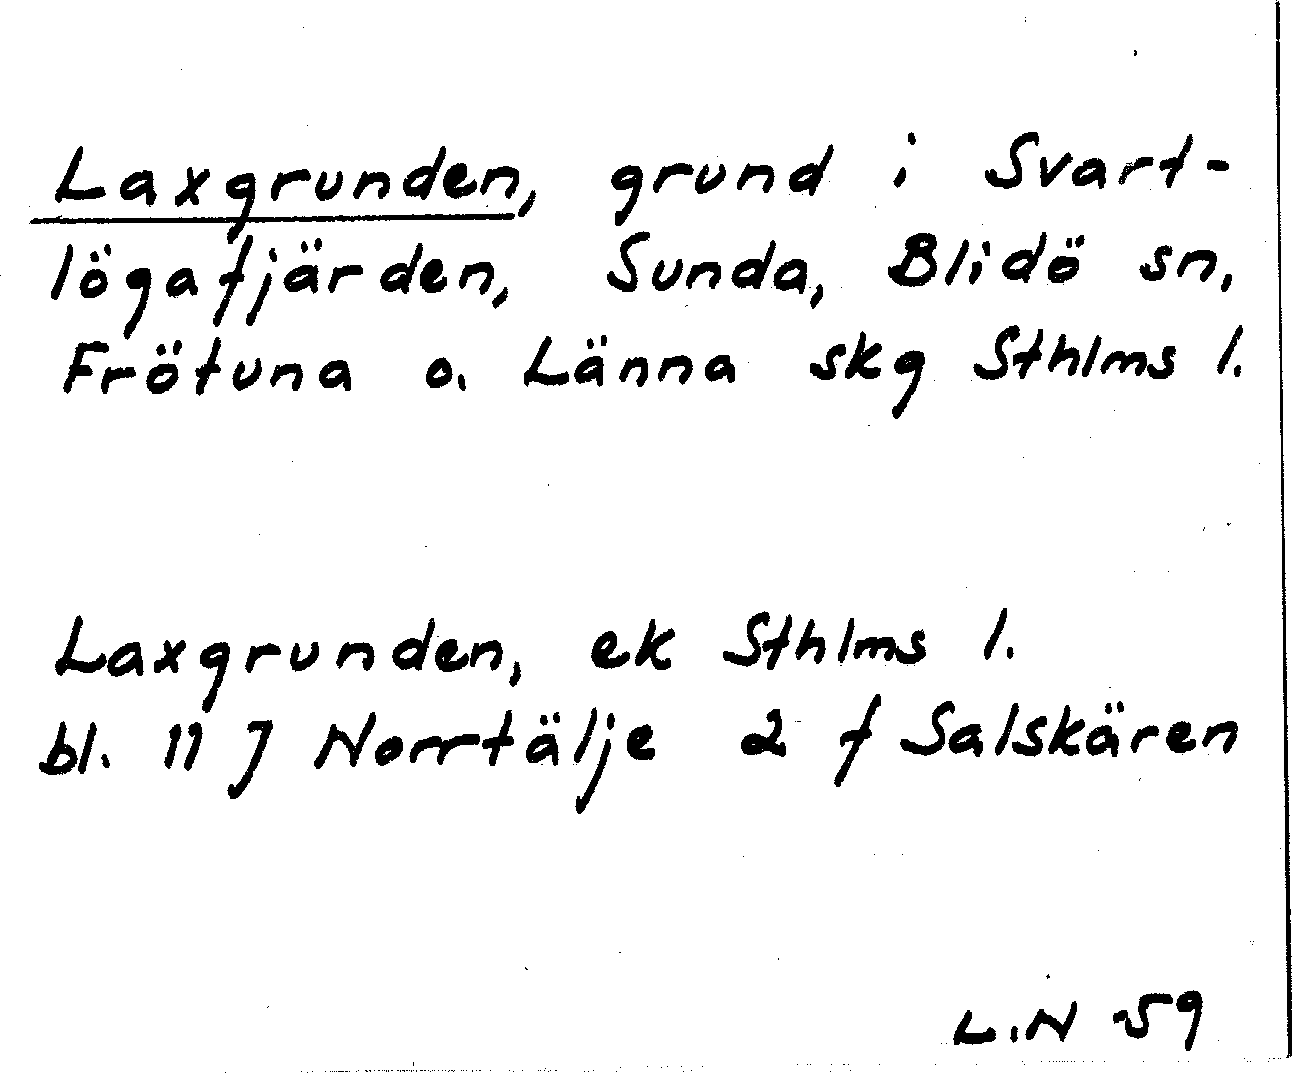 Laxgrunden, grund i Svart-
lögafjärden, Sunda, Blidö sn,
Frötuna o. Länna skg Sthlms l.
Laxgrunden, ek Sthlms l.
bl. 11 J Norrtälje 2 f Salskären
L.N -59